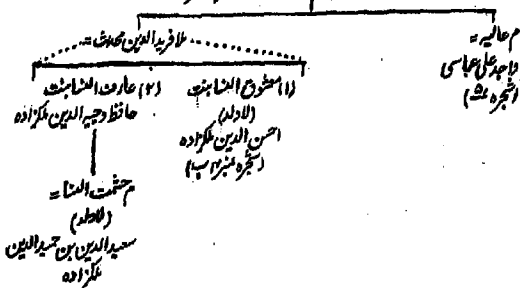 م عالیہ =
واجد علی عباسی
(شجرہ ۵)
ملا فرید الدین محدث =
(۱) معشوق النسا بنت
(لاولد)
احسن الدین ملکزادہ
(شجرہ نمبر ۲ ب)
(۲) عارف النسا بنت
حافظ وجیہ الدین ملکزادہ
م حشمت النسا =
(لاولد)
سعید الدین بن حمید الدین
ملکزادہ